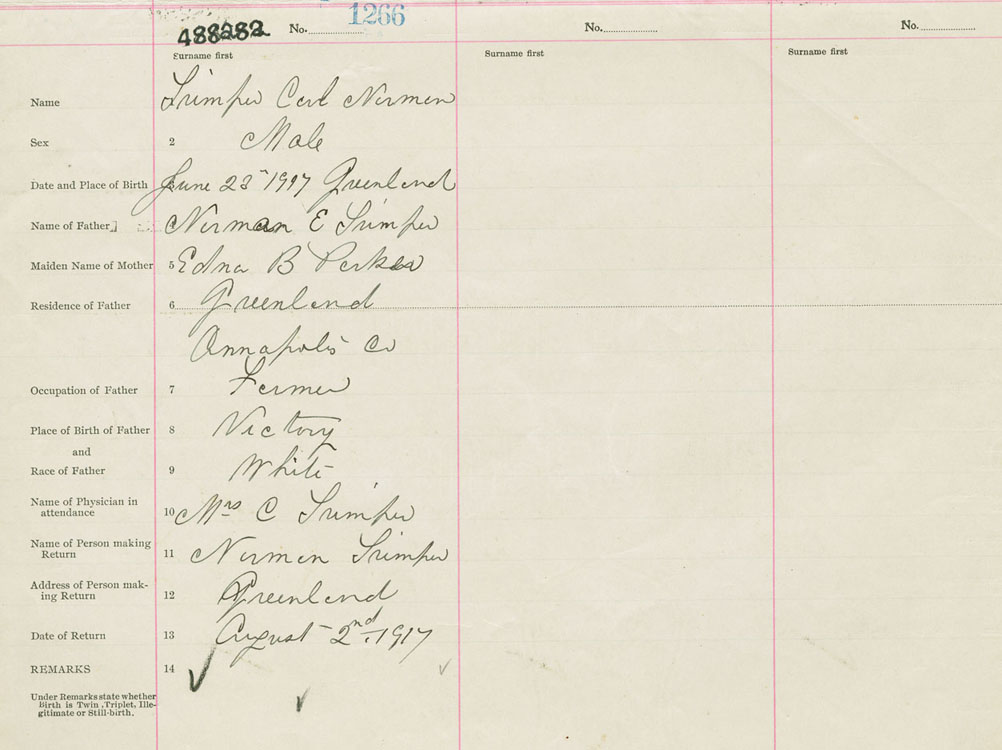 1266
488282 No. No. No.
Surname first Surname first Surname first
Name Trimper Carl Norman
Sex 2 Male
Date and Place of Birth June 23 1917 Greenland
Name of Father Norman E Trimper
Maiden Name of Mother 5 Edna B Parker
Residence of Father 6 Greenland
Annapolis Co
Occupation of Father 7 Farmer
Place of Birth of Father 8 Victory
and
Race of Father 9 White
Name of Physician in
attendance 10 Mrs C Trimper
Name of Person making
Return 11 Norman Trimper
Address of Person mak-
ing Return 12 Greenland
Date of Return 13 August 2nd 1917
REMARKS 14
Under Remarks state whether
Birth is Twin, Triplet, Ille-
gitimate or Still-birth.